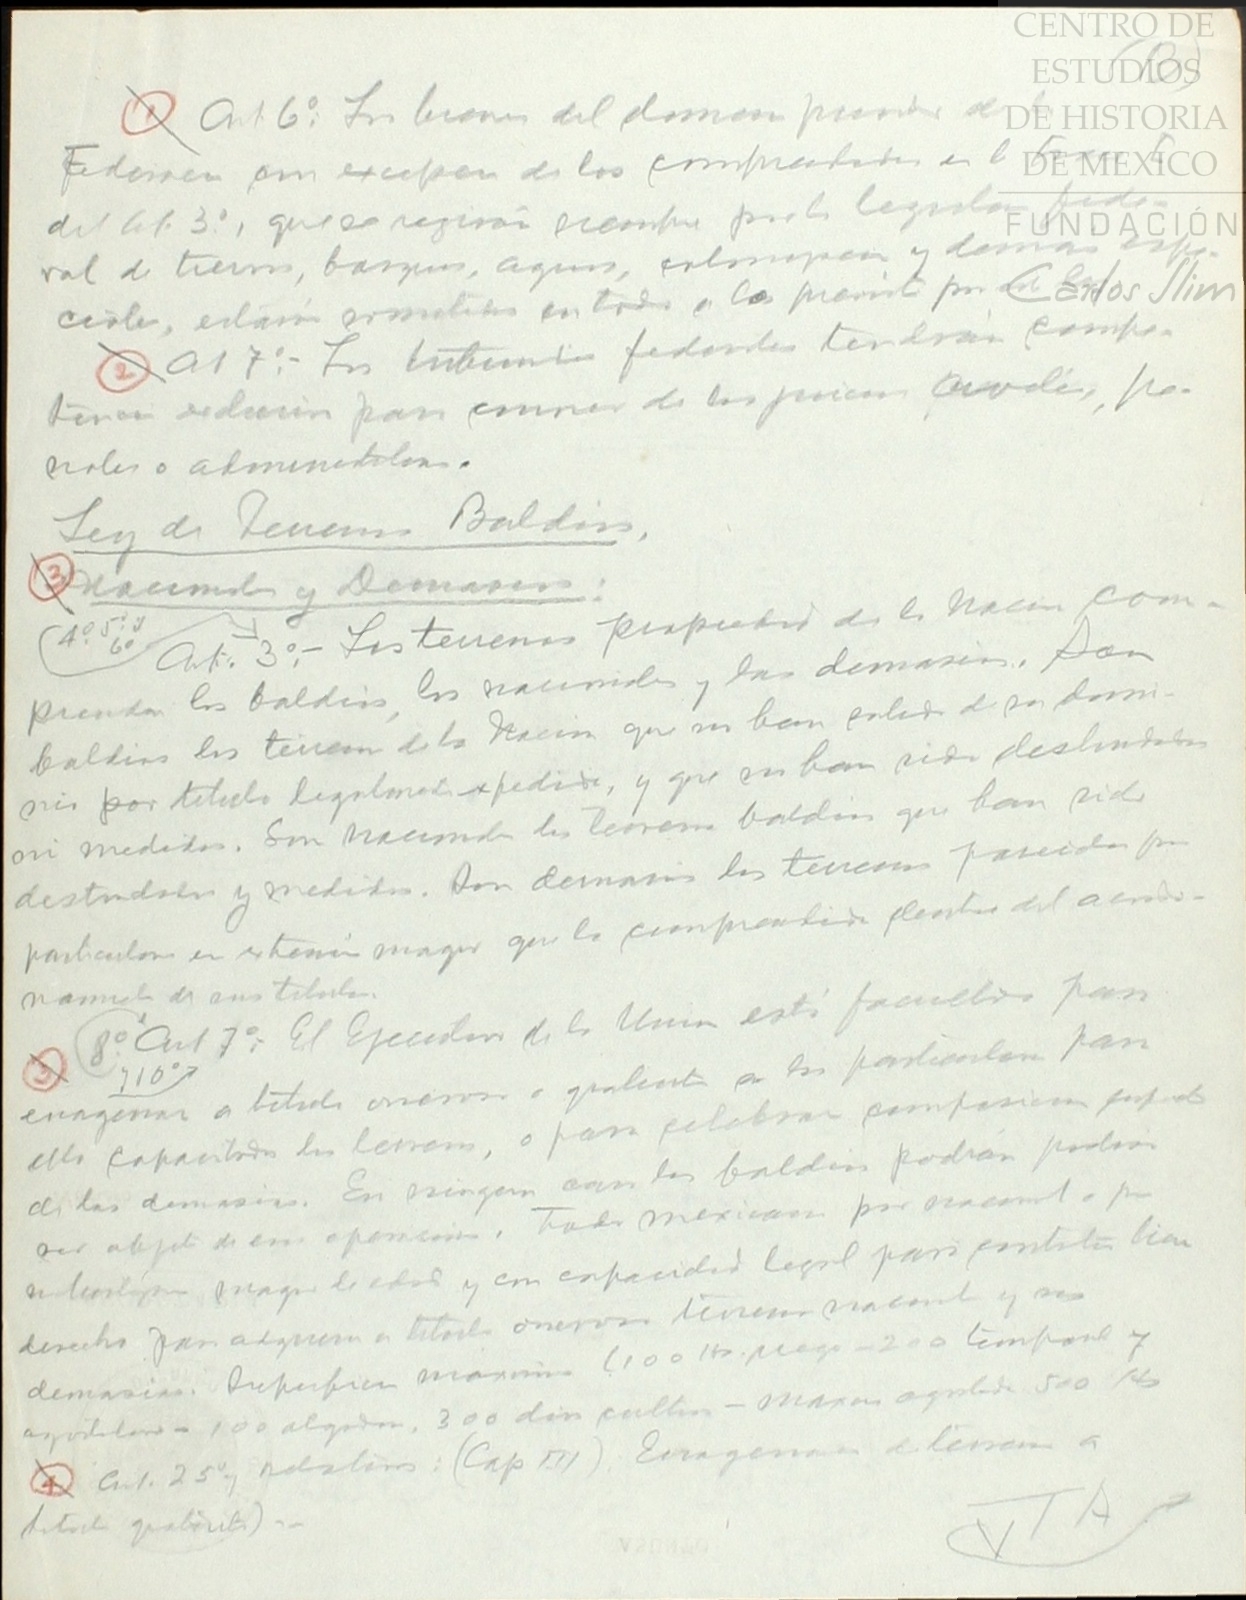 CENTRO DE
ESTUDIOS
DE HISTORIA
DE MEXICO
FUNDACIÓN
Carlos Slim
1 Art. 6º: Los bienes del dominio privado de la
Federación con excepción de los comprendidos en la fracc. I
del Art. 3º, que se regirán siempre por la legislación fede-
ral de tierras, bosques, aguas, colonización y demas espe-
ciales, estarán sometidos en todo a lo previsto por
2 Art 7º:- Los tribunales federales tendrán compe-
tencia exclusiva para conocer de los juicios civiles, pe-
nales o administrativos.
Ley de Terrenos Baldíos,
3 Nacionales y Demasías:
4º 5º y
6º
Art. 3º:- Los terrenos propiedad de la Nación com-
prenden los baldíos, los nacionales y las demasías. Son
baldíos los terrenos de la Nación que no han salido de su domi-
nio por título legalmente expedido, y que no han sido deslindados
ni medidos. Son nacionales los terrenos baldíos que han sido
deslindados y medidos. Son demasías los terrenos poseidos por
particulares en extensión mayor que la comprendida dentro del
de sus títulos.
3 8º Art 7º: El Ejecutivo de la Unión está facultado para
y 10º
enagenar a título oneroso o gratuito a los particulares para
ello capacitados los terrenos, o para celebrar composiciones respecto
de las demasías. En ningun caso los baldíos podrán podrán
ser objeto de esas operaciones. Todo mexicano por nacimiento o por
naturalización mayor de edad y con capacidad legal para contratar tiene
derecho para adquirir a título oneroso terrenos nacionales y sus
demasías. Superficie máxima (100 Hs. riego - 200 temporal y
- 100 algodón, 300 - 500 Hs
4 Art. 25º y relativos: (Cap III). Enagenación de terrenos a
título gratuito) --
VTA